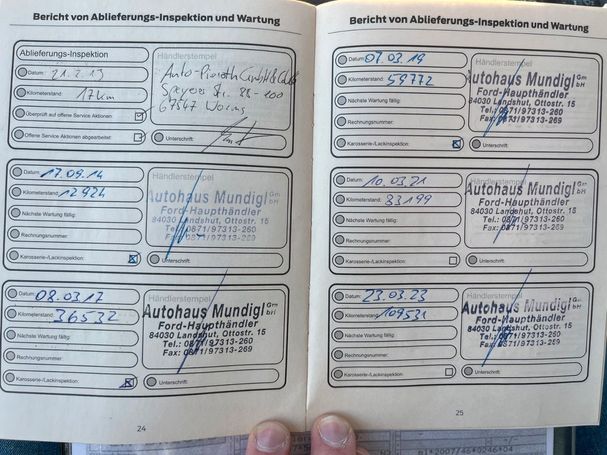 Bericht von Ablieferungs-Inspektion und Wartung
Ablieferungs-Inspektion
Händlerstempel
Datum: 21.2.13
Kilometerstand: 17km
Überprüft auf offene Service Aktionen
Offene Service Aktionen abgearbeitet:
Auto-Pieroth GmbH & Co KG
Speyerer Str. 88-100
67547 Worms
Unterschrift:
Datum: 17.09.14
Kilometerstand: 12924
Nächste Wartung fällig:
Rechnungsnummer:
Karosserie-/Lackinspektion:
Autohaus Mundigl GmbH
Ford-Haupthändler
84030 Landshut, Ottostr. 15
Tel.: 0871/97313-260
Fax: 0871/97313-269
Unterschrift:
Datum: 08.03.17
Kilometerstand: 36532
Nächste Wartung fällig:
Rechnungsnummer:
Karosserie-/Lackinspektion:
Händlerstempel
Autohaus Mundigl GmbH
Ford-Haupthändler
84030 Landshut, Ottostr. 15
Tel.: 0871/97313-260
Fax: 0871/97313-269
Unterschrift:
24
Bericht von Ablieferungs-Inspektion und Wartung
Datum: 07.03.19
Kilometerstand: 59772
Nächste Wartung fällig:
Rechnungsnummer:
Karosserie-/Lackinspektion:
Händlerstempel
Autohaus Mundigl GmbH
Ford-Haupthändler
84030 Landshut, Ottostr. 15
Tel.: 0871/97313-260
Fax: 0871/97313-269
Unterschrift:
Datum: 10.03.21
Kilometerstand: 83199
Nächste Wartung fällig:
Rechnungsnummer:
Karosserie-/Lackinspektion:
Autohaus Mundigl GmbH
Ford-Haupthändler
84030 Landshut, Ottostr. 15
Tel.: 0871/97313-260
Fax: 0871/97313-269
Unterschrift:
Datum: 23.03.23
Kilometerstand: 109531
Nächste Wartung fällig:
Rechnungsnummer:
Karosserie-/Lackinspektion:
Händlerstempel
Autohaus Mundigl GmbH
Ford-Haupthändler
84030 Landshut, Ottostr. 15
Tel.: 0871/97313-260
Fax: 0871/97313-269
Unterschrift:
25